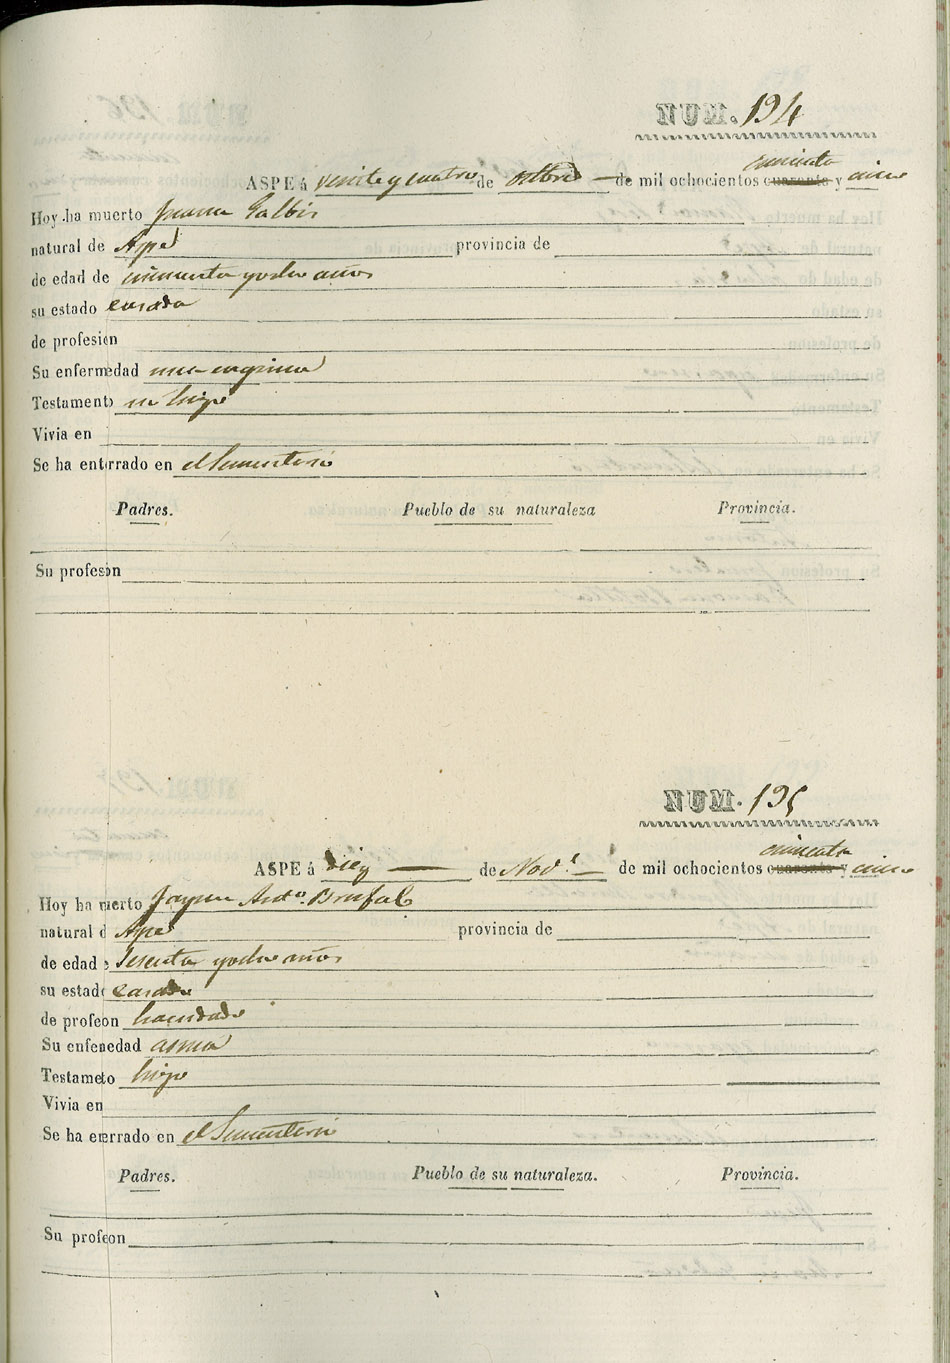 NUM. 194
cincuenta
ASPE á veinte y cuatro de octbre de mil ochocientos cuarenta y cinco
Hoy ha muerto Juana Galbis
natural de Aspe provincia de
de edad de cincuenta y ocho años
su estado casada
de profesion
Su enfermedad una angina
Testamento no hizo
Vivia en
Se ha enterrado en el Sementerio
Padres. Pueblo de su naturaleza Provincia.
Su profesion
NUM. 195
cincuenta
ASPE á Diez de Nove. de mil ochocientos cuarenta y cinco
Hoy ha muerto Jayme Anto. Brufal
natural d Aspe provincia de
de edad e Sesenta y ocho años
su estado casado
de profeon hacendado
Su enfenedad asma
Testameto hizo
Vivia en
Se ha enrrado en el Sementerio
Padres. Pueblo de su naturaleza. Provincia.
Su profeon